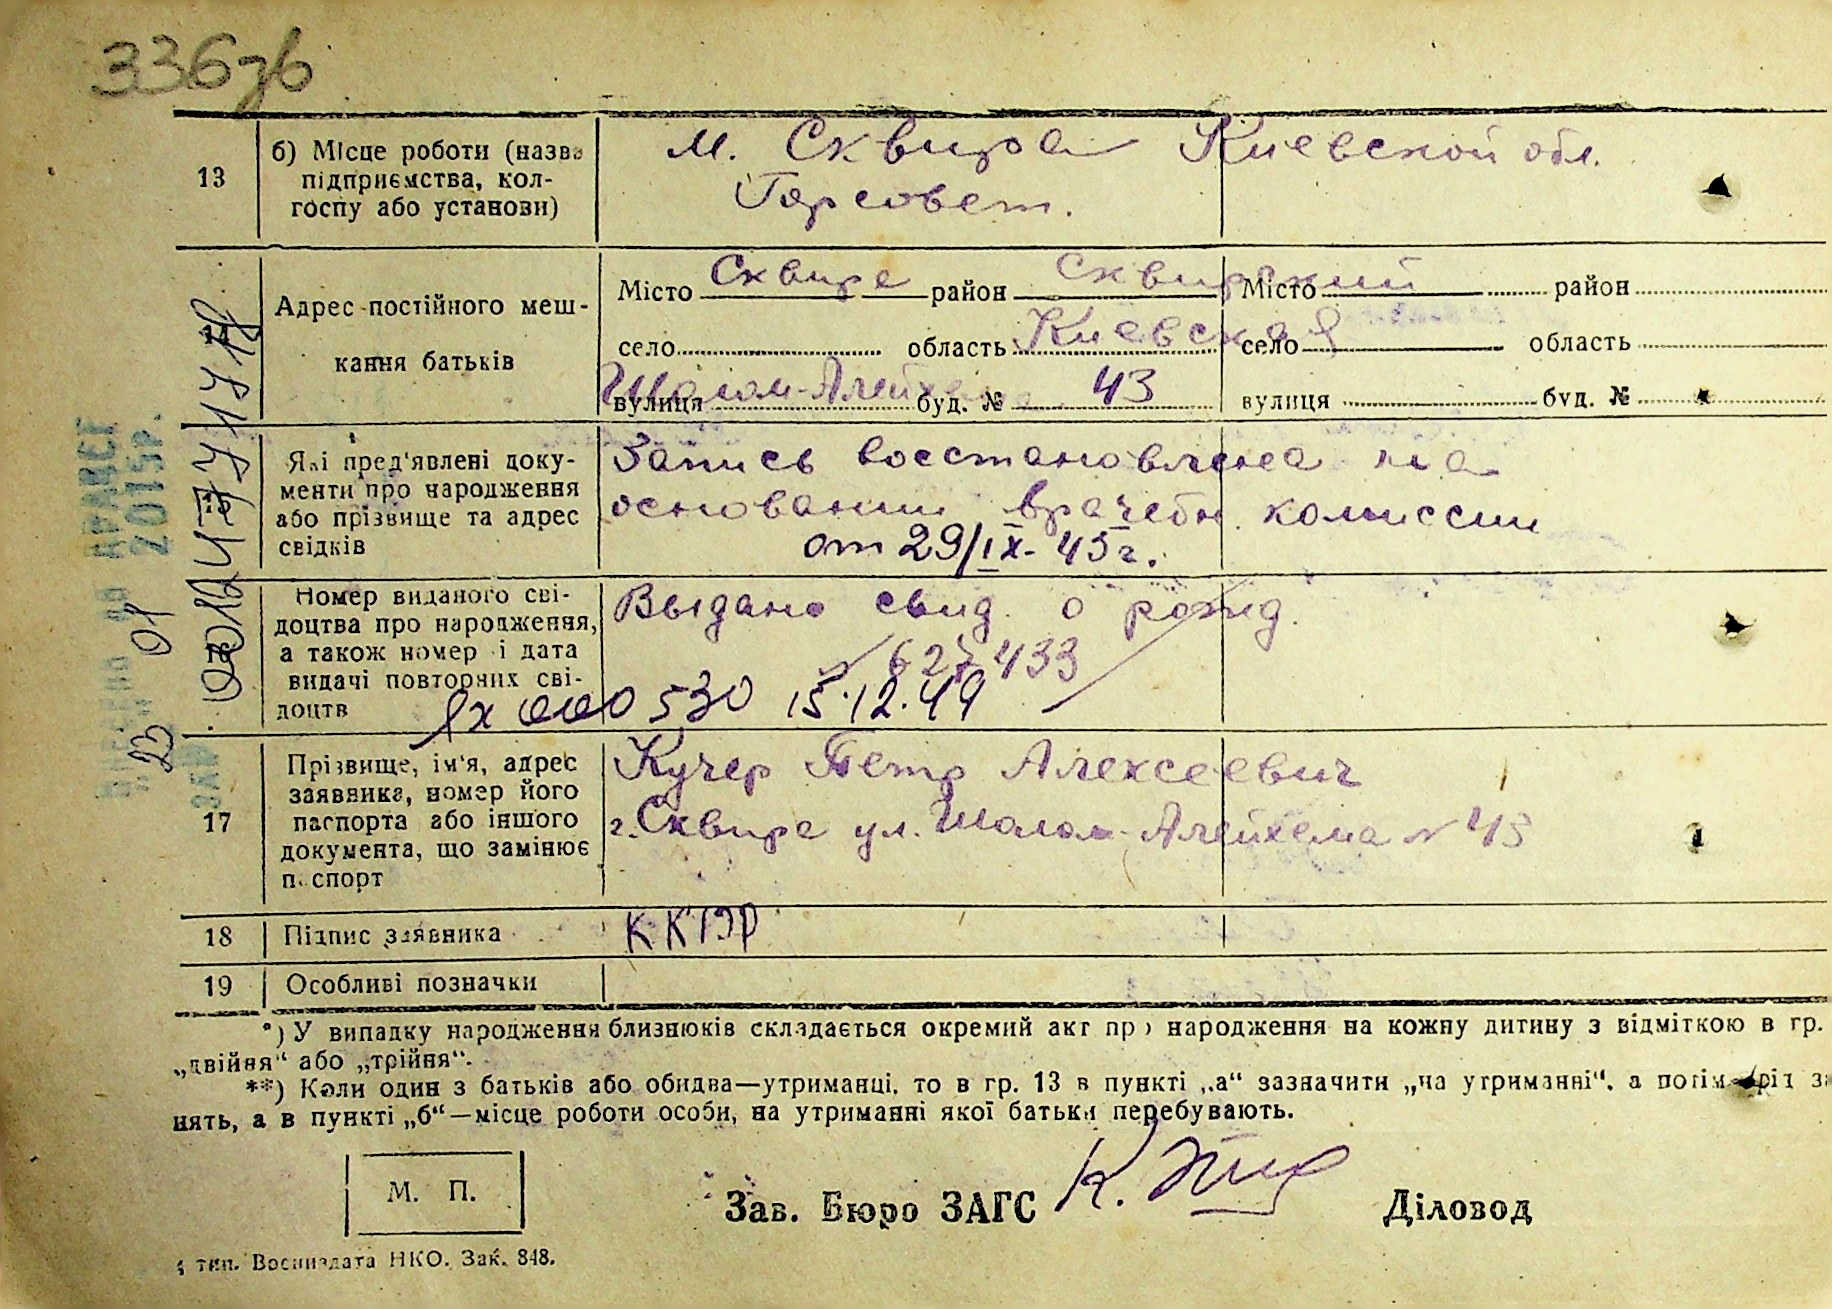 336зв
13
б) Місце роботи (назва
підприємства, кол-
госпу або установи)
м. Сквира Киевской обл.
Горсовет.
14
Адрес постійного меш-
кання батьків
Місто Сквира район Сквирский
село область Киевская
вулиця Шолом-Алейхема буд. № 43
Місто район
село область
вулиця буд. №
Які пред'явлені доку-
менти про народження
або прізвище та адрес
свідків
Запись восстановлена на
основании врачебн. комиссии
от 29/IX-45г.
Номер виданого сві-
доцтва про народження,
а також номер і дата
видачі повторних сві-
доцтв
Выдано свид. о рожд.
№ 627433
000530 15.12.49
17
Прізвище, ім'я, адрес
заявника, номер його
паспорта або іншого
документа, що замінює
паспорт
Кучер Петр Алексеевич
г. Сквира ул. Шолом-Алейхема № 43
18
Підпис заявника
19
Особливі позначки
*) У випадку народження близнюків складається окремий акт про народження на кожну дитину з відміткою в гр.
„двійня“ або „трійня“.
**) Коли один з батьків або обидва—утриманці, то в гр. 13 в пункті „а“ зазначити „на утриманні“, а потім рід за
нять, а в пункті „б“—місце роботи особи, на утриманні якої батьки перебувають.
М. П.
Зав. Бюро ЗАГС
Діловод
тип. Воениздата НКО. Зак. 848.
2015р.
23 01